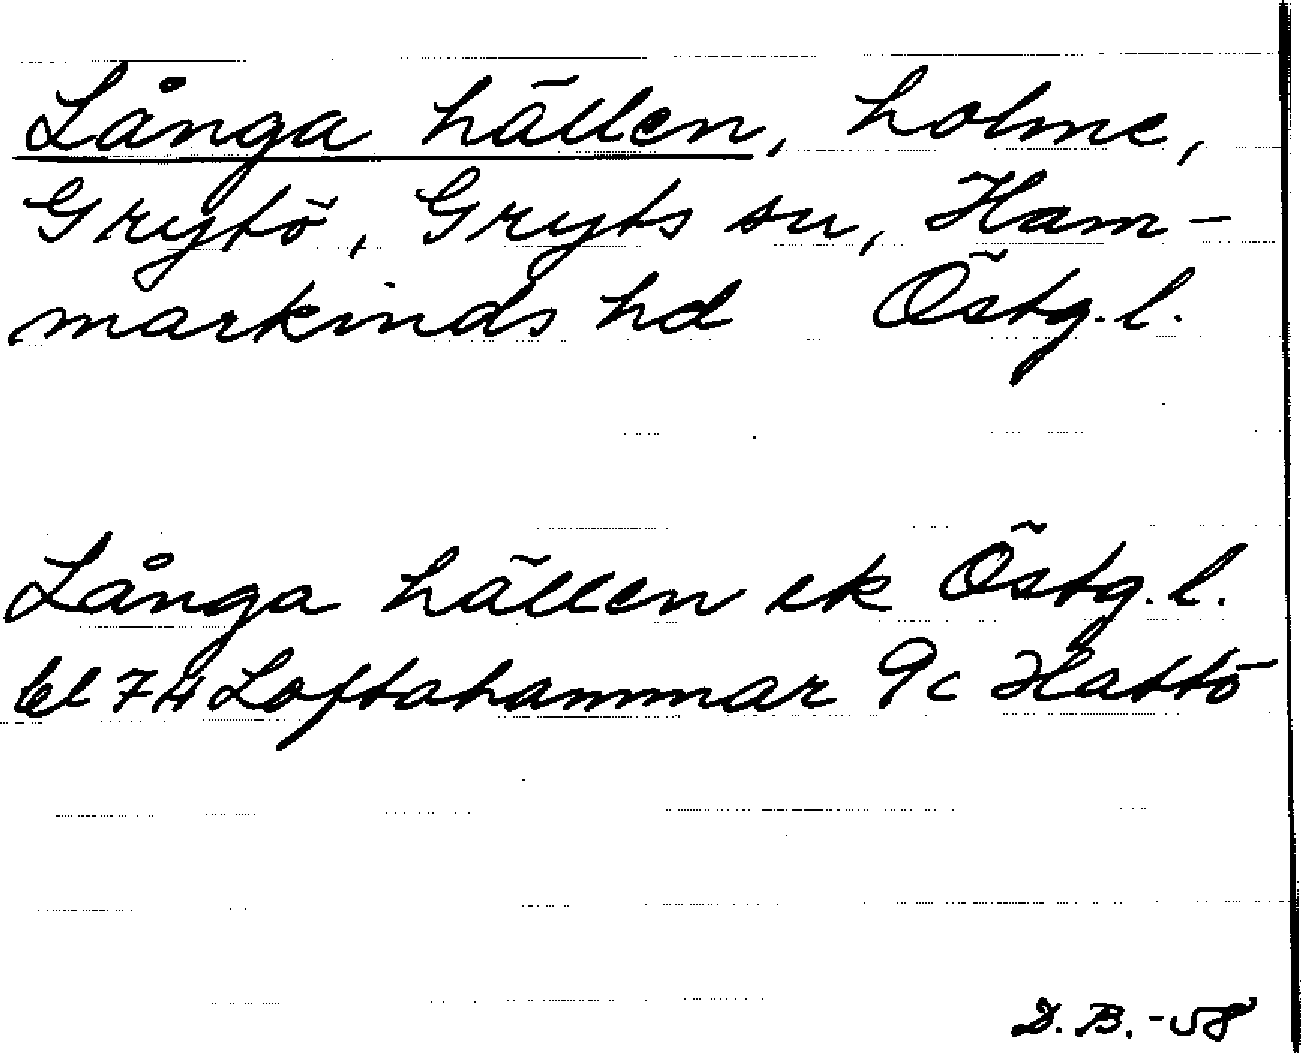 Långa hällen, holme,
Grytö, Gryts sn, Ham-
markinds hd Östg. l.
Långa hällen ek Östg. l.
bl 74 Loftahammar 9c Hattö
D. B. -58